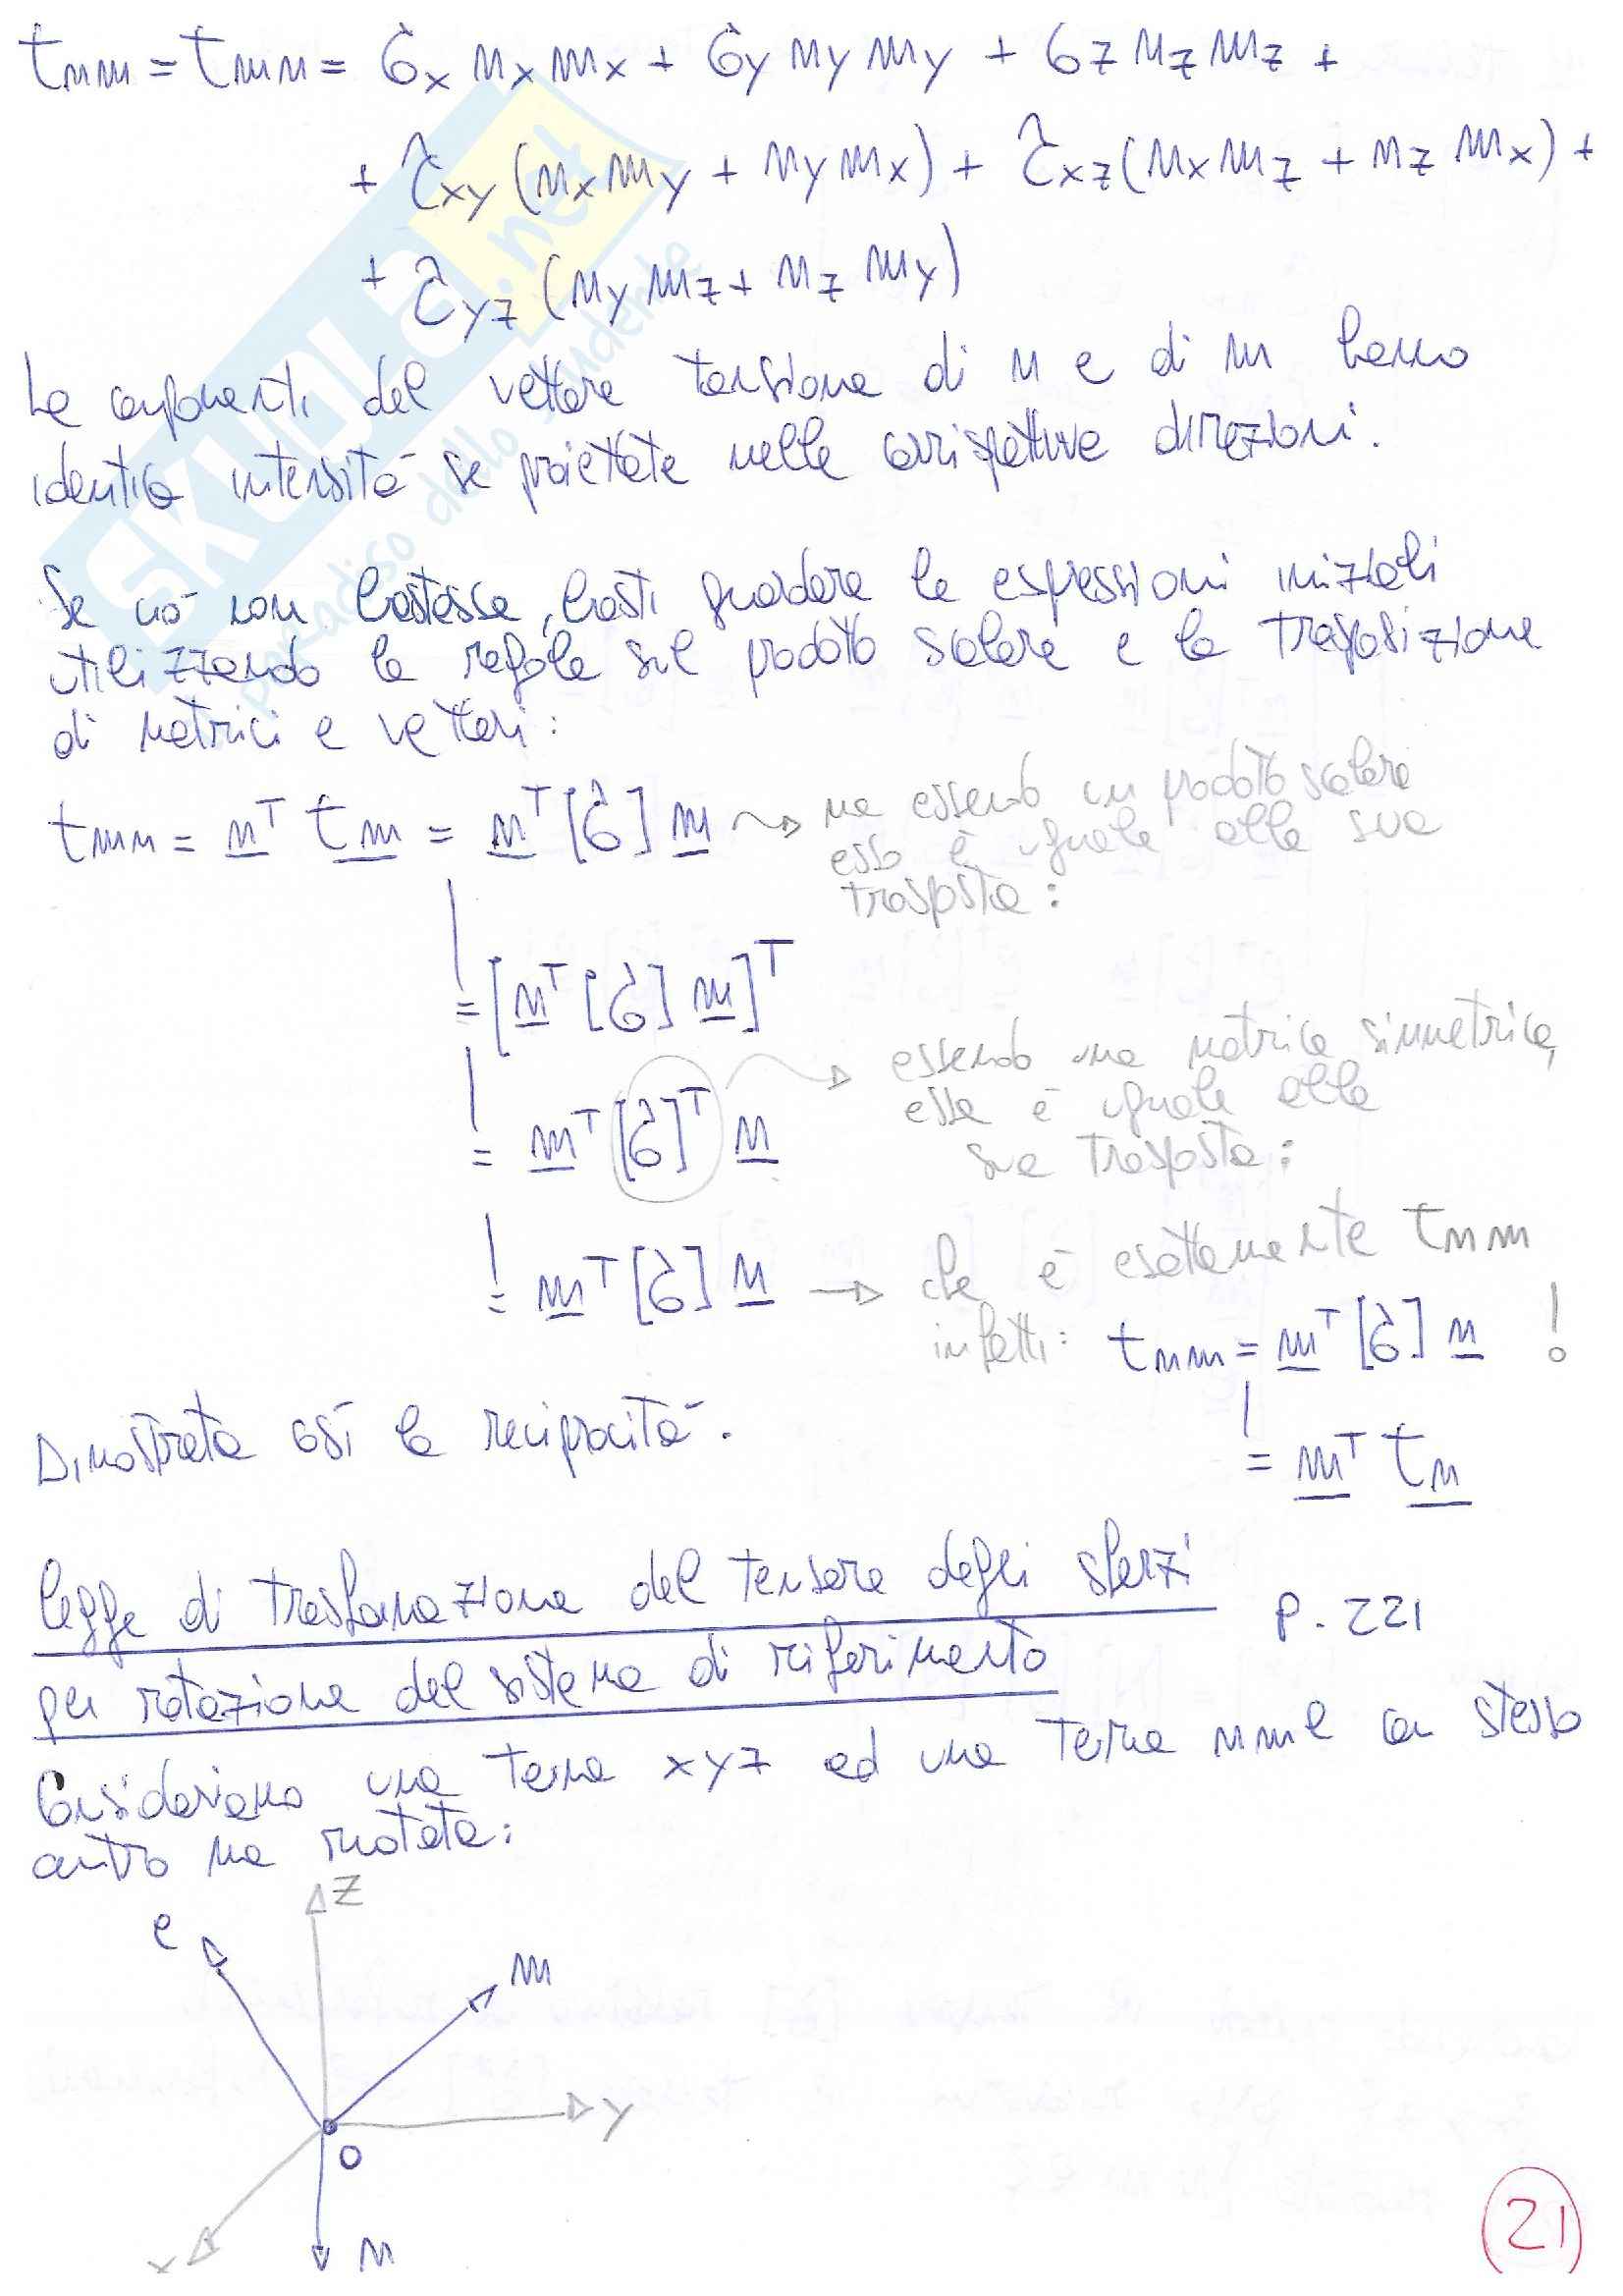 t_nm = t_mn = σ_x n_x m_x + σ_y n_y m_y + σ_z n_z m_z +
+ τ_xy (n_x m_y + n_y m_x) + τ_xz (n_x m_z + n_z m_x) +
+ τ_yz (n_y m_z + n_z m_y)
Le componenti del vettore tensione di n e di m hanno
identica intensità se proiettate nelle corrispettive direzioni.
Se ciò non bastasse, basti guardare le espressioni iniziali
utilizzando le regole sul prodotto scalare e la trasposizione
di matrici e vettori:
t_mn = n^T t_m = n^T [σ] m → ma essendo un prodotto scalare
esso è uguale alla sua
trasposta:
= [n^T [σ] m]^T
= m^T [σ]^T n → essendo una matrice simmetrica,
essa è uguale alla
sua trasposta:
= m^T [σ] n → che è esattamente t_nm
infatti: t_nm = m^T [σ] n !
= m^T t_n
Dimostrata così la reciprocità.
Legge di trasformazione del tensore degli sforzi
p. 221
per rotazione del sistema di riferimento
Consideriamo una terna xyz ed una terna nml con stesso
centro ma ruotata:
z
l
m
y
O
x
n
21
SKUOLA.net
paradiso dello studente